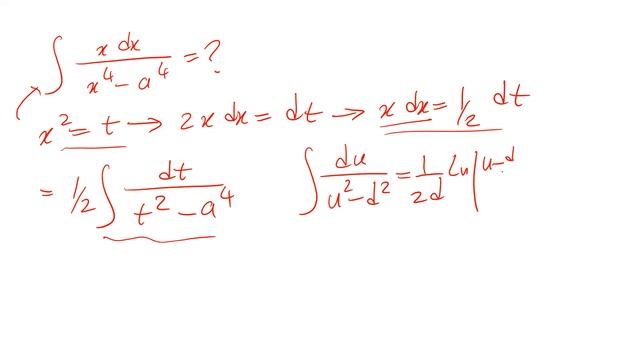 ∫ x dx / (x⁴ − a⁴) = ?
x² = t → 2x dx = dt → x dx = 1/2 dt
= 1/2 ∫ dt / (t² − a⁴)
∫ du / (u² − d²) = 1/(2d) Ln |u−d